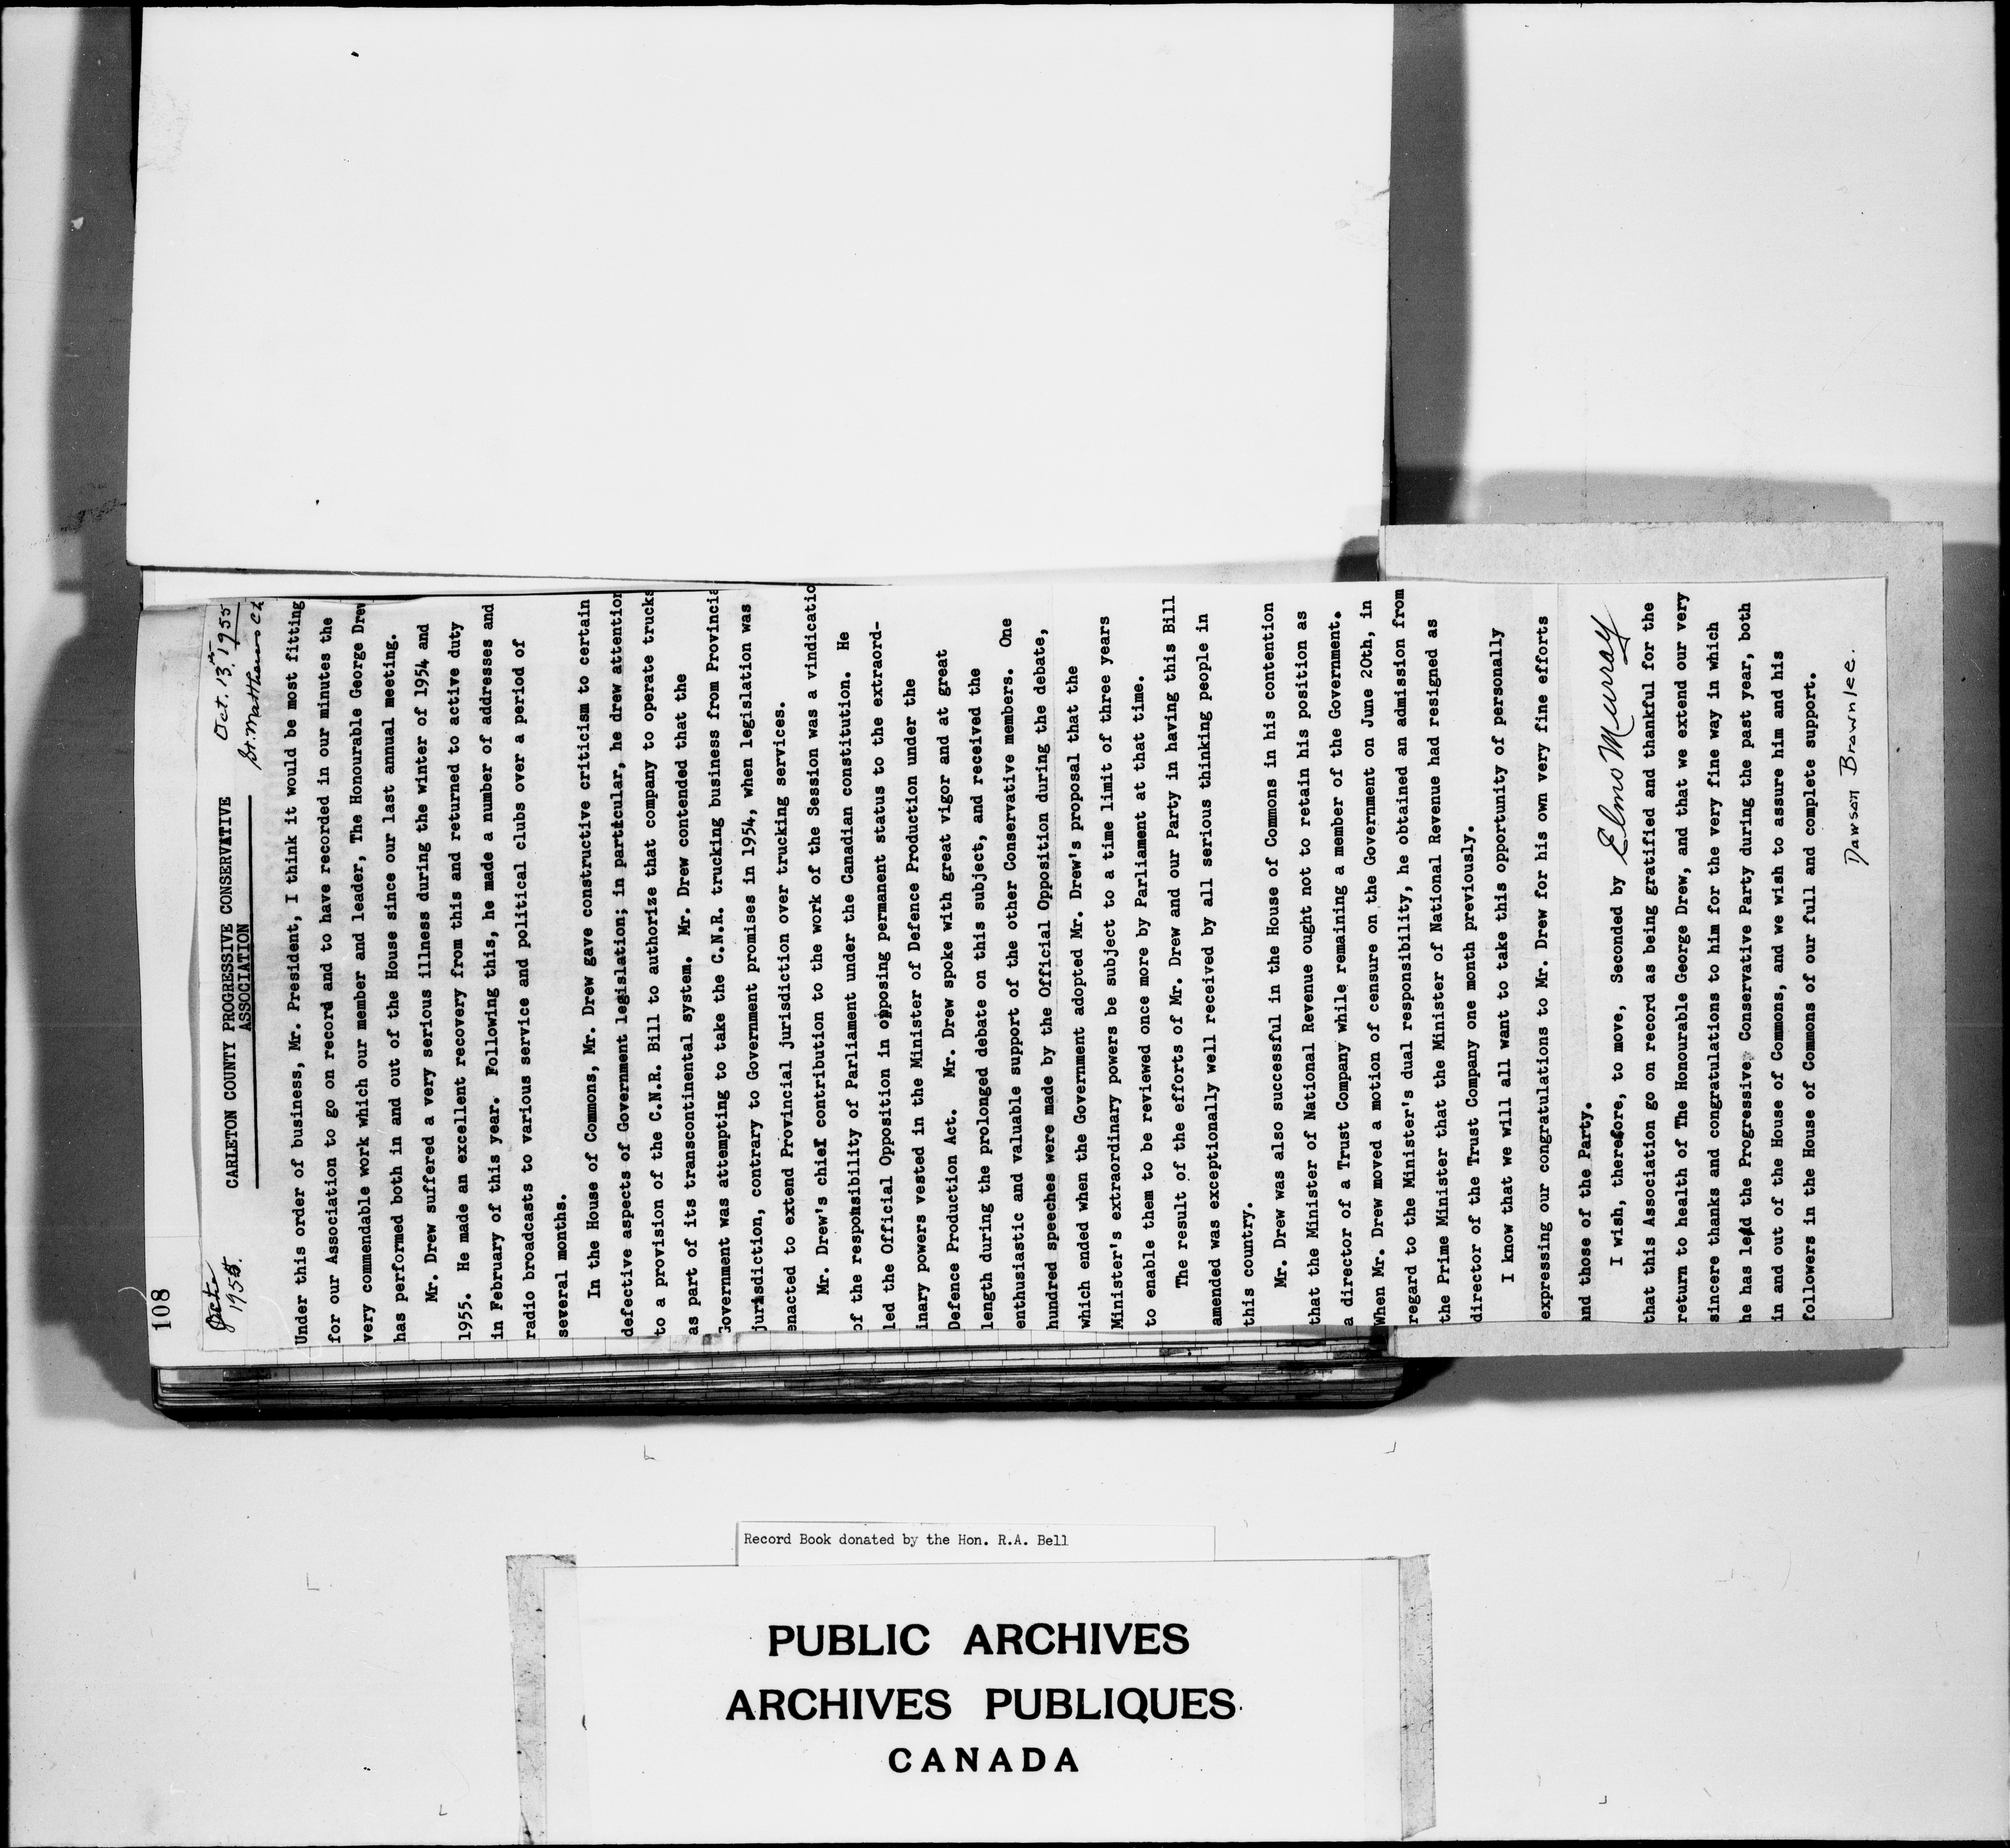 108
Octo 1955.
Oct. 13th 1955
St. Matthews Ch
CARLETON COUNTY PROGRESSIVE CONSERVATIVE
ASSOCIATION
Under this order of business, Mr. President, I think it would be most fitting
for our Association to go on record and to have recorded in our minutes the
very commendable work which our member and leader, The Honourable George Drew
has performed both in and out of the House since our last annual meeting.
Mr. Drew suffered a very serious illness during the winter of 1954 and
1955. He made an excellent recovery from this and returned to active duty
in February of this year. Following this, he made a number of addresses and
radio broadcasts to various service and political clubs over a period of
several months.
In the House of Commons, Mr. Drew gave constructive criticism to certain
defective aspects of Government legislation; in particular, he drew attention
to a provision of the C.N.R. Bill to authorize that company to operate trucks
as part of its transcontinental system. Mr. Drew contended that the
Government was attempting to take the C.N.R. trucking business from Provincia
jurisdiction, contrary to Government promises in 1954, when legislation was
enacted to extend Provincial jurisdiction over trucking services.
Mr. Drew's chief contribution to the work of the Session was a vindicatio
of the responsibility of Parliament under the Canadian constitution. He
led the Official Opposition in opposing permanent status to the extraord-
inary powers vested in the Minister of Defence Production under the
Defence Production Act. Mr. Drew spoke with great vigor and at great
length during the prolonged debate on this subject, and received the
enthusiastic and valuable support of the other Conservative members. One
hundred speeches were made by the Official Opposition during the debate,
which ended when the Government adopted Mr. Drew's proposal that the
Minister's extraordinary powers be subject to a time limit of three years
to enable them to be reviewed once more by Parliament at that time.
The result of the efforts of Mr. Drew and our Party in having this Bill
amended was exceptionally well received by all serious thinking people in
this country.
Mr. Drew was also successful in the House of Commons in his contention
that the Minister of National Revenue ought not to retain his position as
a director of a Trust Company while remaining a member of the Government.
When Mr. Drew moved a motion of censure on the Government on June 20th, in
regard to the Minister's dual responsibility, he obtained an admission from
the Prime Minister that the Minister of National Revenue had resigned as
director of the Trust Company one month previously.
I know that we will all want to take this opportunity of personally
expressing our congratulations to Mr. Drew for his own very fine efforts
and those of the Party.
I wish, therefore, to move, Seconded by Elmo Murray
that this Association go on record as being gratified and thankful for the
return to health of The Honourable George Drew, and that we extend our very
sincere thanks and congratulations to him for the very fine way in which
he has led the Progressive Conservative Party during the past year, both
in and out of the House of Commons, and we wish to assure him and his
followers in the House of Commons of our full and complete support.
Dawson Brownlee.
Record Book donated by the Hon. R.A. Bell
PUBLIC ARCHIVES
ARCHIVES PUBLIQUES
CANADA